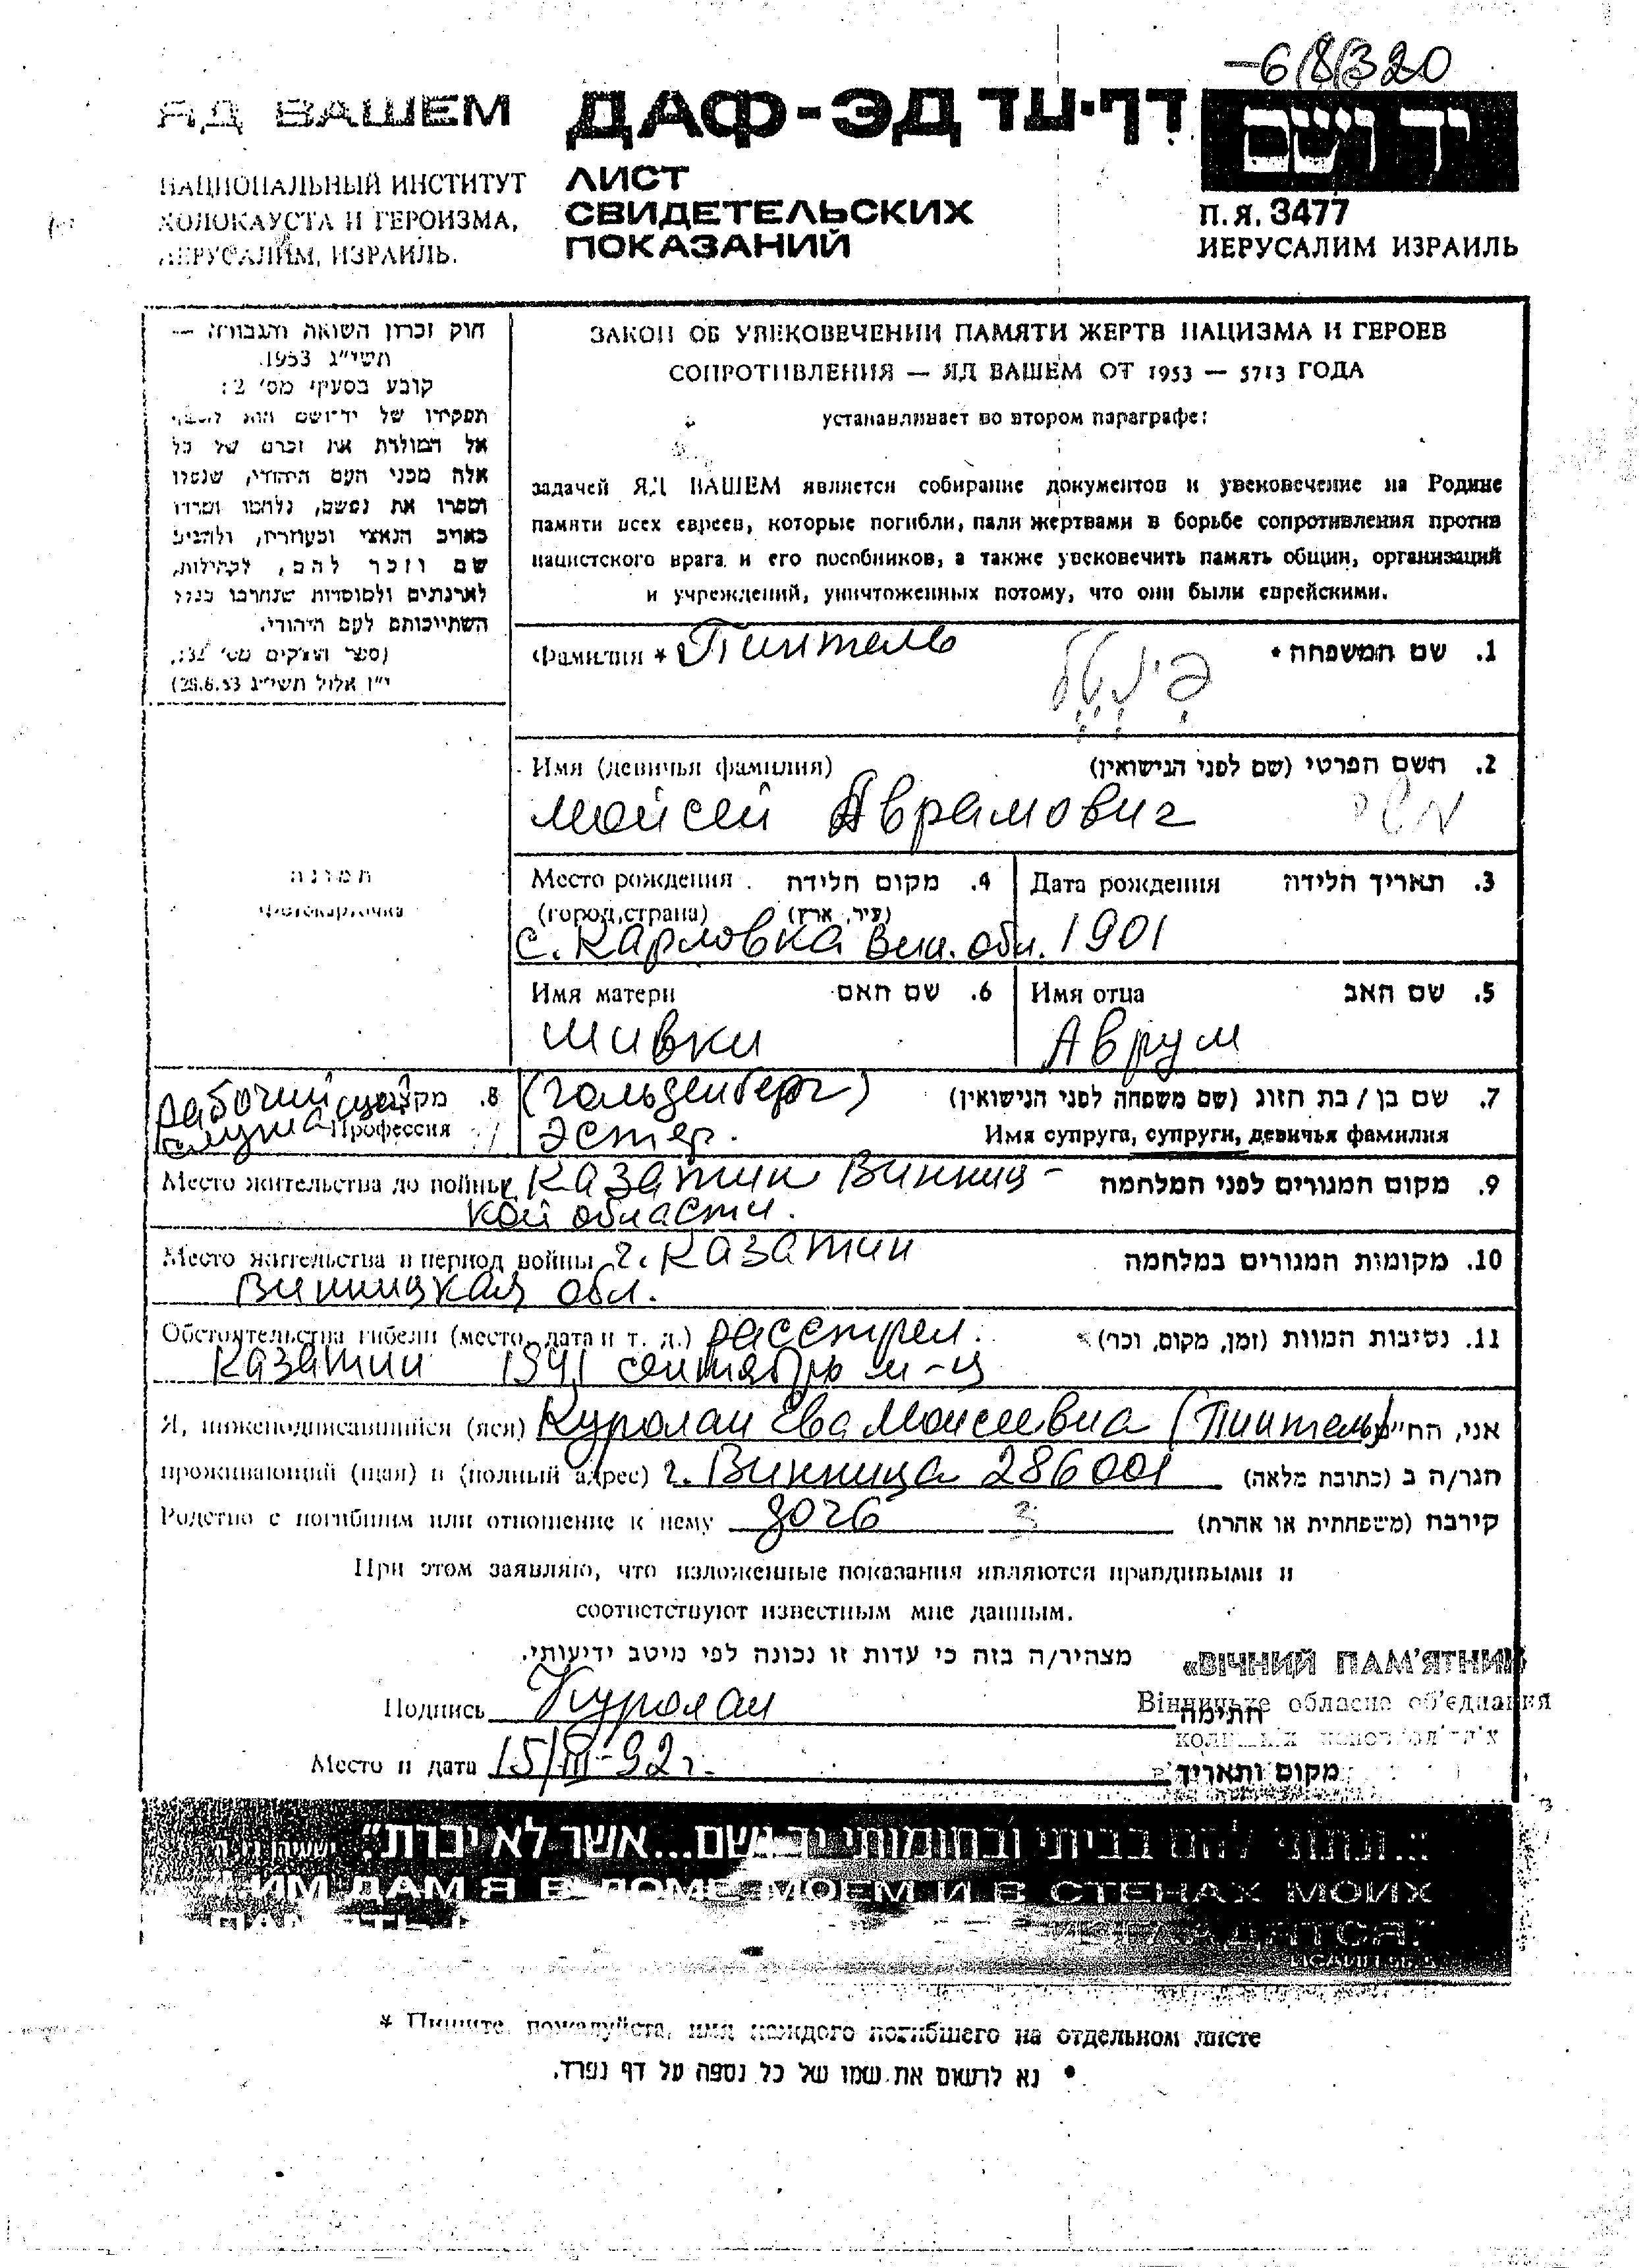 -618320
ЯД ВАШЕМ
ДАФ-ЭД דף-עד
יד ושם
НАЦИОНАЛЬНЫЙ ИНСТИТУТ
ХОЛОКАУСТА И ГЕРОИЗМА,
ИЕРУСАЛИМ, ИЗРАИЛЬ.
ЛИСТ
СВИДЕТЕЛЬСКИХ
ПОКАЗАНИЙ
П.Я. 3477
ИЕРУСАЛИМ ИЗРАИЛЬ
חוק זכרון השואה והגבורה —
תשי״ג 1953.
קובע בסעיף מס׳ 2:
תפקידו של יד־ושם הוא לאסוף
אל המולדת את זכרם של כל
אלה מבני העם היהודי, שנפלו
ומסרו את נפשם, נלחמו ומרדו
באויב הנאצי ובעוזריו, ולהציב
שם וזכר להם, לקהילות,
לארגונים ולמוסדות שנחרבו בגלל
השתייכותם לעם היהודי.
(ספר החוקים מס׳ 132,
י״ז אלול תשי״ג 28.8.53)
ЗАКОН ОБ УВЕКОВЕЧЕНИИ ПАМЯТИ ЖЕРТВ НАЦИЗМА И ГЕРОЕВ
СОПРОТИВЛЕНИЯ — ЯД ВАШЕМ ОТ 1953 — 5713 ГОДА
устанавливает во втором параграфе:
задачей ЯД ВАШЕМ является собирание документов и увековечение на Родине
памяти всех евреев, которые погибли, пали жертвами в борьбе сопротивления против
нацистского врага и его пособников, а также увековечить память общин, организаций
и учреждений, уничтоженных потому, что они были еврейскими.
Фамилия * Пинтель 1. שם המשפחה *
פינטל
Имя (девичья фамилия) 2. השם הפרטי (שם לפני הנישואין)
Мойсей Аврамович
תמונה
Фотокарточка
Место рождения 4. מקום הלידה
(город, страна) (עיר, ארץ)
с. Карловка Вин. обл.
Дата рождения 3. תאריך הלידה
1901
Имя матери 6. שם האם
Шивки
Имя отца 5. שם האב
Аврум
8. מקצוע
рабочий
Профессия
7. שם בן / בת הזוג (שם משפחה לפני הנישואין)
(Гольденберг)
Эстер.
Имя супруга, супруги, девичья фамилия
Место жительства до войны Казатин Винниц- 9. מקום המגורים לפני המלחמה
кой области.
Место жительства в период войны г. Казатин 10. מקומות המגורים במלחמה
Винницкая обл.
Обстоятельства гибели (место, дата и т. д.) расстрел. 11. נסיבות המוות (זמן, מקום, וכו׳)
Казатин 1941 сентябрь м-ц
Я, нижеподписавшийся (аяся) Куролап Ева Моисеевна (Пинтель) אני, הח״מ
проживающий (щая) в (полный адрес) г. Винница 286001 הגר/ה ב (כתובת מלאה)
Родство с погибшим или отношение к нему дочь קירבה (משפחתית או אחרת)
При этом заявляю, что изложенные показания являются правдивыми и
соответствуют известным мне данным.
מצהיר/ה בזה כי עדות זו נכונה לפי מיטב ידיעותי.
«ВІЧНИЙ ПАМ'ЯТНИК»
Вінницьке обласне об'єднання
Подпись Куролап חתימה
Место и дата 15/III-92 г. מקום ותאריך
״...ונתתי להם בביתי ובחומותי יד ושם...אשר לא יכרת״.
„ИМ ДАМ Я В ДОМЕ МОЕМ И В СТЕНАХ МОИХ
* Пишите, пожалуйста, имя каждого погибшего на отдельном листе
* נא לרשום את שמו של כל נספה על דף נפרד.